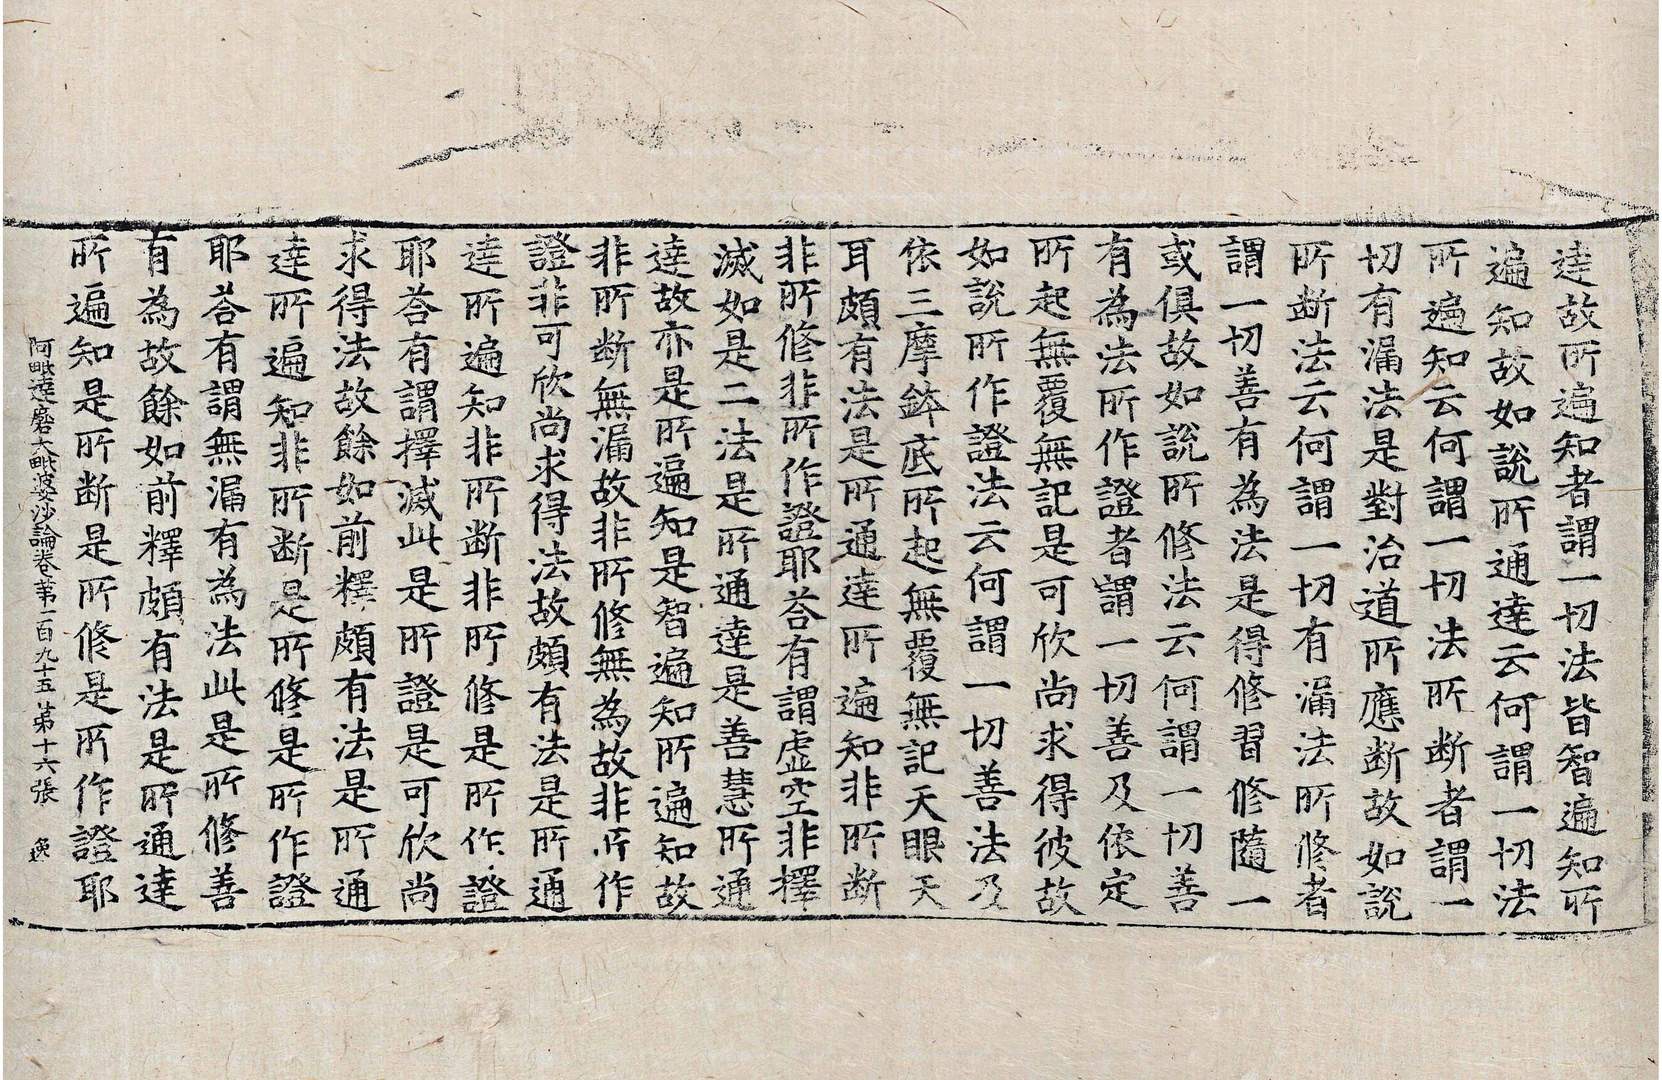 達故所遍知者謂一切法皆智遍知所
遍知故如說所通達云何謂一切法
所遍知云何謂一切法所断者謂一
切有漏法是對治道所應断故如說
所断法云何謂一切有漏法所修者
謂一切善有為法是得修習修隨一
或俱故如說所修法云何謂一切善
有為法所作證者謂一切善及依定
所起無覆無記是可欣尚求得彼故
如說所作證法云何謂一切善法及
依三摩鉢底所起無覆無記天眼天
耳頗有法是所通達所遍知非所断
非所修非所作證耶荅有謂虛空非擇
滅如是二法是所通達是善慧所通
達故亦是所遍知是智遍知所遍知故
非所断無漏故非所修無為故非所作
證非可欣尚求得法故頗有法是所通
達所遍知非所断非所修是所作證
耶荅有謂擇滅此是所證是可欣尚
求得法故餘如前釋頗有法是所通
達所遍知非所断是所修是所作證
耶荅有謂無漏有為法此是所修善
有為故餘如前釋頗有法是所通達
所遍知是所断是所修是所作證耶
阿毗達磨大毗婆沙論卷苐一百九十五 苐十六張 逸